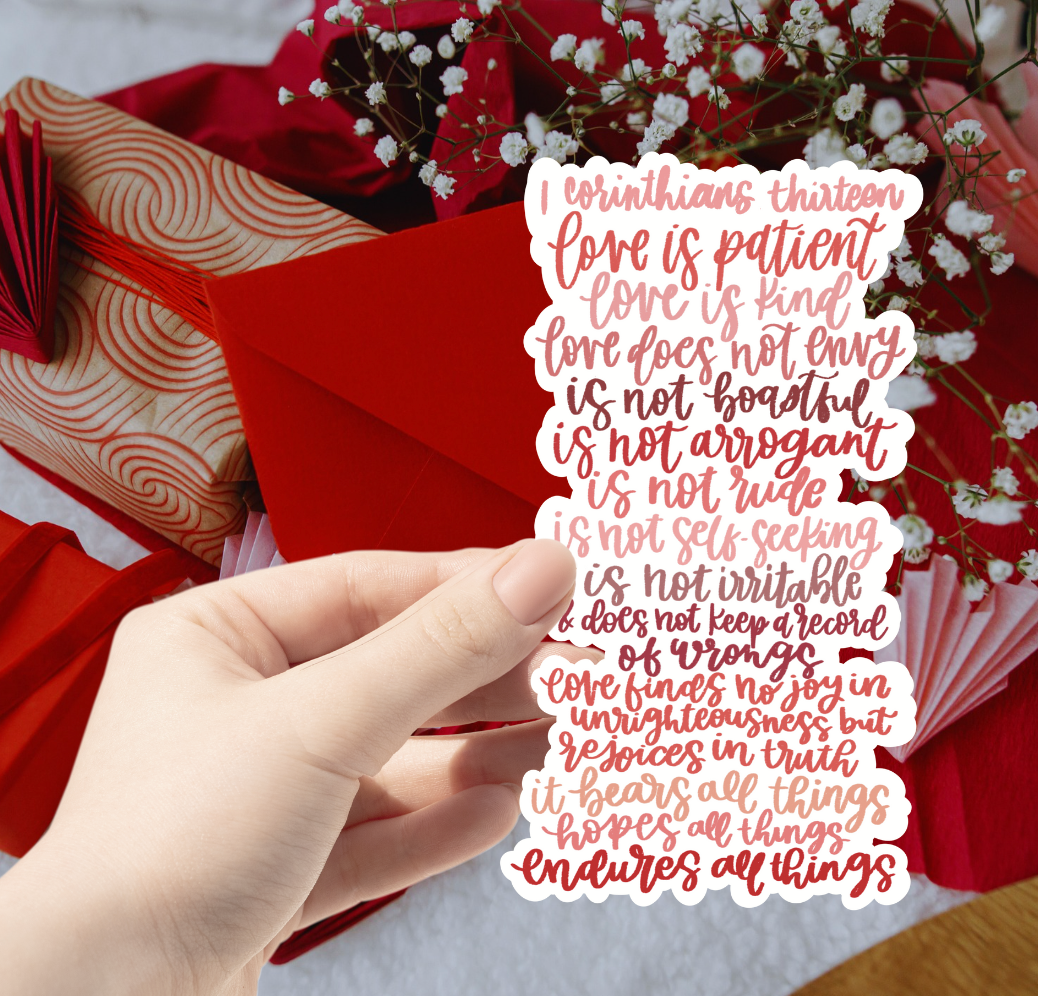 1 corinthians thirteen
love is patient
love is kind
love does not envy
is not boastful,
is not arrogant
is not rude
is not self-seeking
is not irritable
& does not keep a record
of wrongs
love finds no joy in
unrighteousness but
rejoices in truth
it bears all things
hopes all things
endures all things